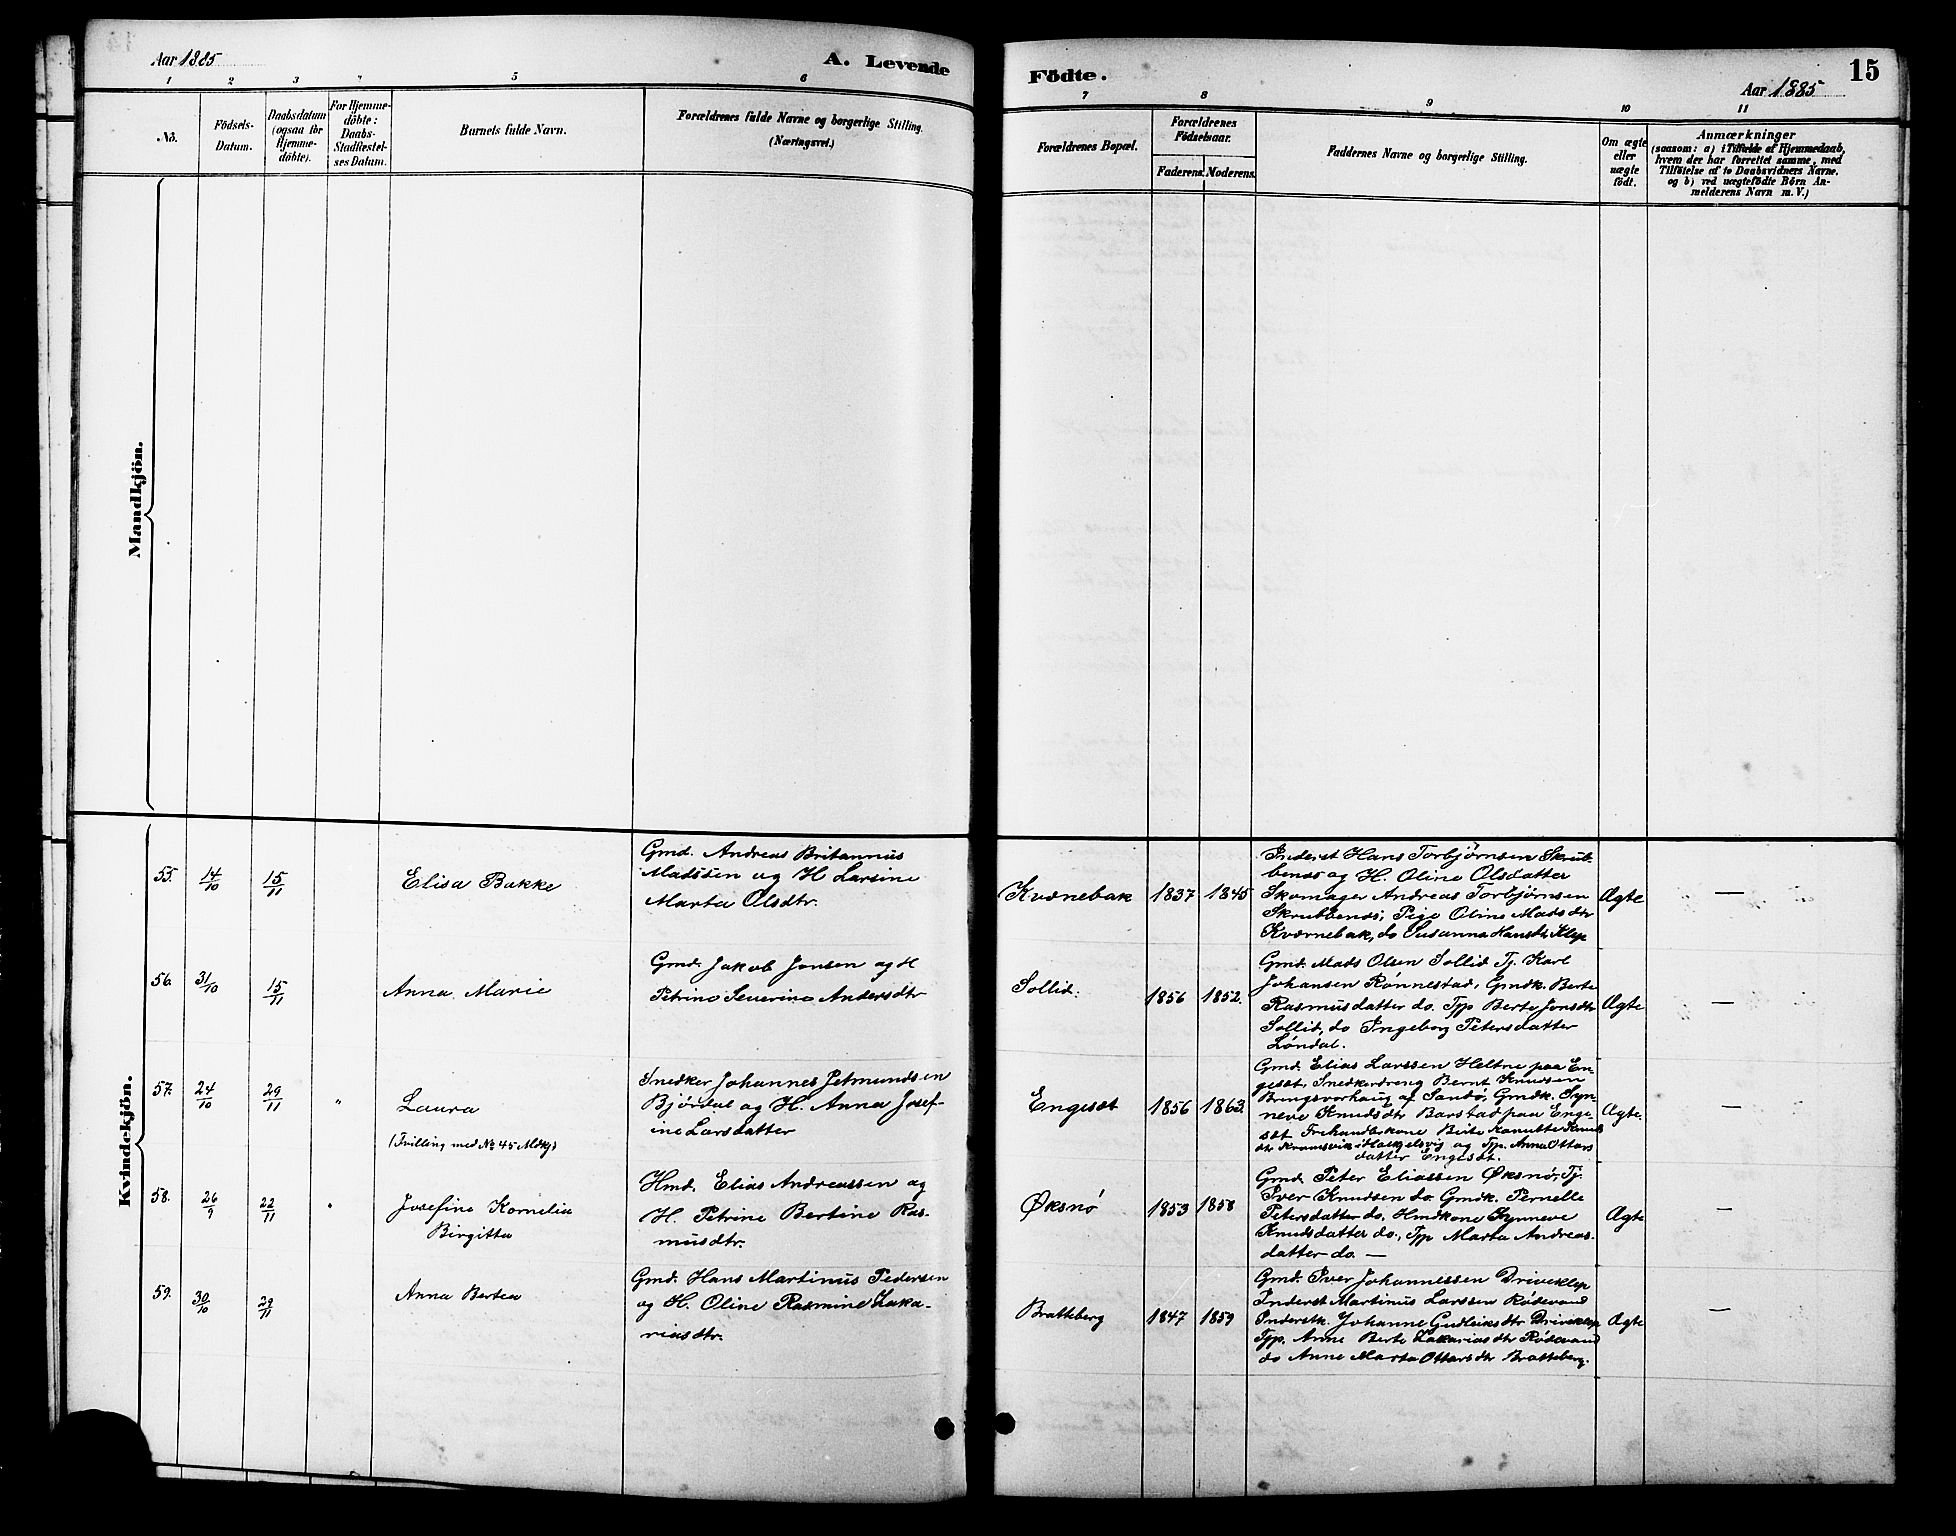 Aar 1885
A. Levende
Födte.
15
Aar 1885
1 2 3 4 5 6
7 8 9 10 11
No.
Födsels-
Datum.
Daabsdatum
(ogsaa for
Hjemme-
döbte).
For Hjemme-
döbte:
Daabs-
Stadfæstel-
ses Datum.
Barnets fulde Navn.
Forældrenes fulde Navne og borgerlige Stilling.
(Næringsvei.)
Forældrenes Bopæl.
Forældrenes
Födselsaar.
Faderens. Moderens.
Faddernes Navne og borgerlige Stilling.
Om ægte
eller
uægte
födt.
Anmærkninger
(saasom: a) i Tilfælde af Hjemmedaab,
hvem der har forrettet samme, med
Tilföielse af to Daabsvidners Navne.
og b) ved uægtefödte Börn An-
melderens Navn m. V.)
Mandkjön.
Kvindekjön.
55. 14/10 15/11
Elisa Bakke
Gmd. Andreas Britannus
Madssen og H Larsine
Marta Olsdtr.
Kvernebak 1837 1845
Inderst Hans Torbjørnsen Skrub-
benes og H. Oline Olsdatter
Skomager Andreas Torbjørnsen
Skrubbenes, Pige Oline Madsdtr
Kvernebak, do Susanna Hansdtr Klep
Ægte —
56. 31/10 15/11
Anna Marie
Gmd. Jakob Jonsen og H
Petrine Severine Andersdtr
Sollid. 1856 1852.
Gmd. Mads Olsen Sollid Tj. Karl
Johansen Rønnestad, Gmdk. Berte
Rasmusdatter do. Tpp Berte Jonsdtr
Sollid, do Ingeborg Petersdatter
Løndal.
Ægte —
57. 24/10 29/11 "
Laura
(Tvilling med No 45 Mdkj)
Snedker Johannes Petmundsen
Bjørdal og H. Anna Josef-
ine Larsdatter
Engeset 1856 1863.
Gmd. Elias Larssen Heltne paa En-
geset, Snedkerdreng Bernt Knudsen
Bringsvorhaug af Sandø, Gmdk. Syn-
neve Knudsdtr Barstad paa Enge-
set Frihandlekone Beite Kanutte Knuds
dtr og Tpp. Anna Ottars
datter Engeset.
Ægte. —
58. 26/9 22/11 "
Josefine Kornelia
Birgitta
Hmd. Elias Andreassen og
H. Petrine Bertine Ras-
musdtr.
Øksnø 1853 1858
Gmd. Peter Eliassen Øksnø, Tj.
Iver Knudsen do. Gmdk. Pernelle
Petersdatter do. Hmdkone Synneve
Knudsdatter do., Tpp Marta Andreas-
datter do. —
Ægte —
59. 30/10 29/11
Anna Bertea
Gmd. Hans Martinus Pedersen
og H. Oline Rasmine Zaka-
riasdtr.
Bratteberg 1847 1859
Gmd. Iver Johannessen Driveklep
Inderst Martinus Larssen Rødevand
Inderstk. Johanne Gudleiksdtr Driveklep
Tpp. Anne Berte Zakariasdtr Rødevand
do Anne Marta Ottarsdtr Bratteberg.
Ægte —